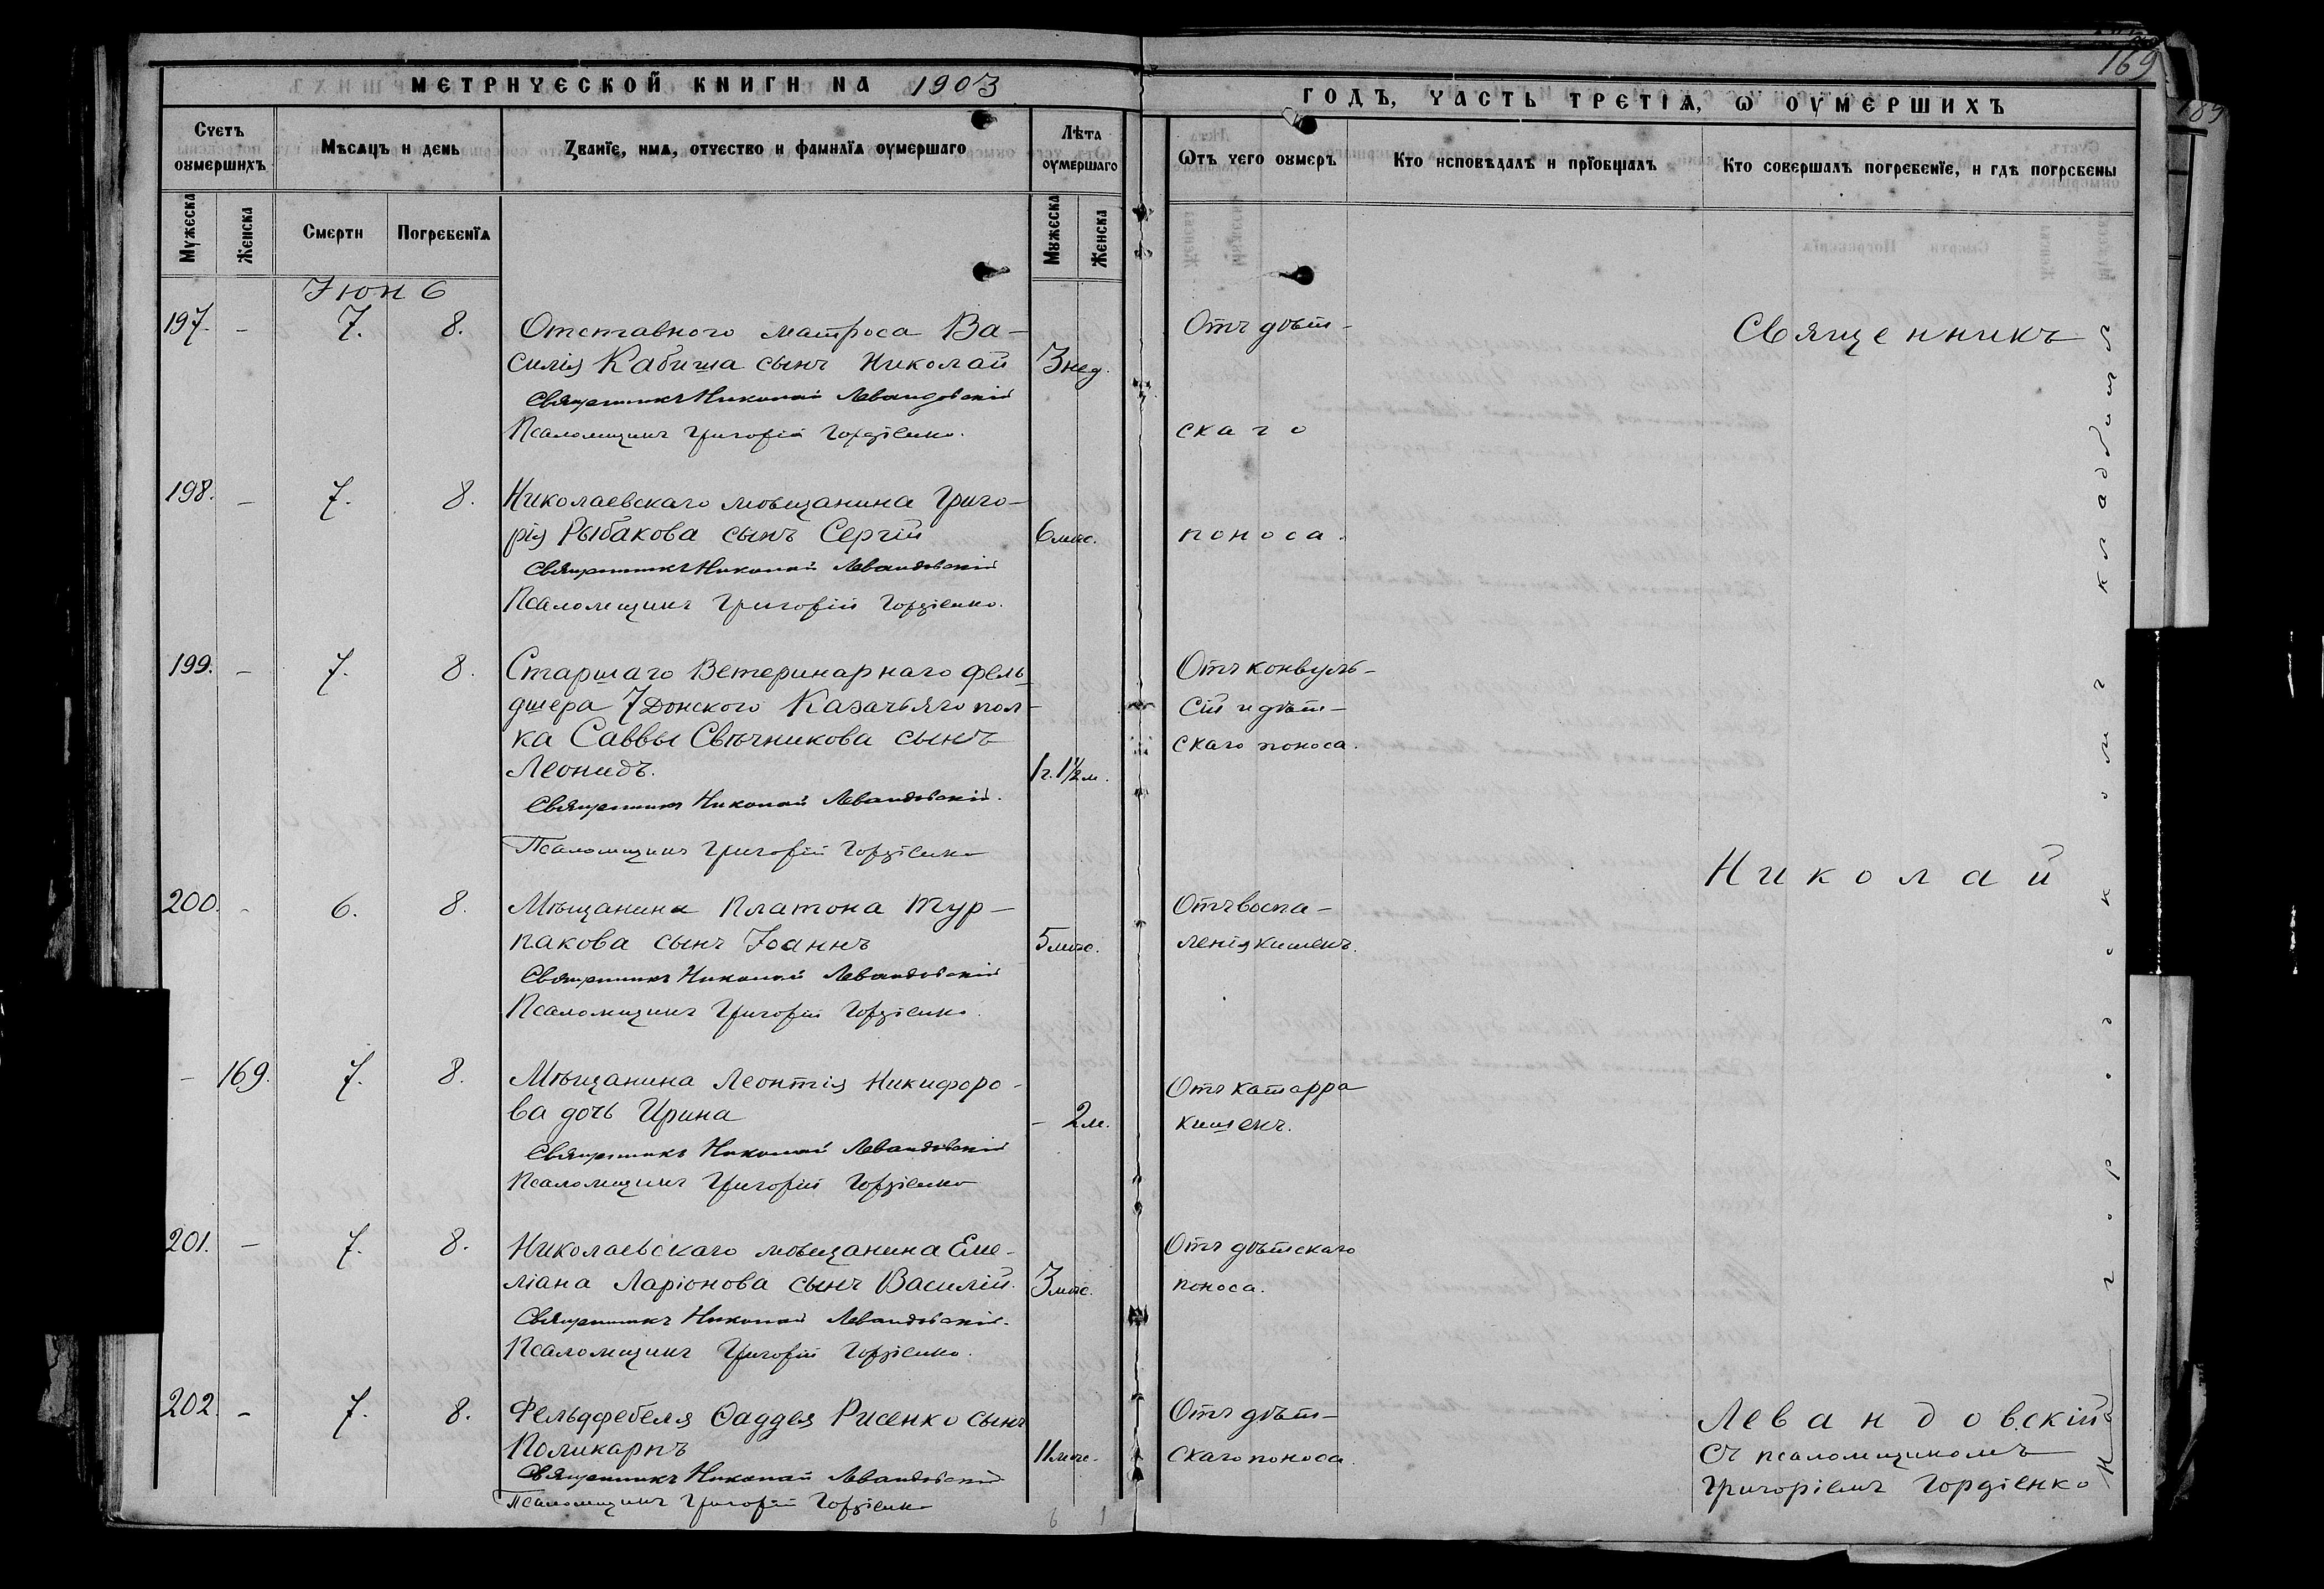 МЕТРИЧЕСКОЙ КНИГИ НА 1903
Счетъ оумершихъ
Мѣсяцъ и день
Званїе, имя, отчество и фамилїя оумершаго
Лѣта оумершаго
Мужеска
Женска
Смерти
Погребенїя
Мужеска
Женска
Іюнь
197. - 7. 8.
Отставного матроса Ва-
силія Кабиша сынъ Николай 3 нед.
Священникъ Николай Левандовскій
Псаломщикъ Григорій Гордіенко.
198. - 7. 8.
Николаевскаго мѣщанина Григо-
рія Рыбакова сынъ Сергій 6 мѣс.
Священникъ Николай Левандовскій
Псаломщикъ Григорій Гордіенко.
199. - 7. 8.
Старшаго Ветеринарнаго фель-
дшера 7 Донского Казачьяго пол-
ка Саввы Свѣчникова сынъ
Леонидъ. 1 г. 1½ м.
Священникъ Николай Левандовскій.
Псаломщикъ Григорій Гордіенко
200. - 6. 8.
Мѣщанина Платона Тур-
пакова сынъ Іоаннъ 5 мѣс.
Священникъ Николай Левандовскій
Псаломщикъ Григорій Гордіенко.
- 169. 7. 8.
Мѣщанина Леонтія Никифоро-
ва дочь Ирина - 2 м.
Священникъ Николай Левандовскій
Псаломщикъ Григорій Гордіенко
201. - 7. 8.
Николаевскаго мѣщанина Еме-
ліана Ларіонова сынъ Василій. 3 мѣс.
Священникъ Николай Левандовскій.
Псаломщикъ Григорій Гордіенко.
202. - 7. 8.
Фельдфебеля Ѳаддея Рисенко сынъ
Поликарпъ 11 мѣс.
Священникъ Николай Левандовскій
Псаломщикъ Григорій Гордіенко
6 1
169
ГОДЪ, ЧАСТЬ ТРЕТІЯ, Ѡ ОУМЕРШИХЪ
Ѿтъ чего оумеръ
Кто исповѣдалъ и прїобщалъ
Кто совершалъ погребенїе, и гдѣ погребены
Отъ дѣт-
скаго
поноса.
Отъ конвуль-
сій и дѣт-
скаго поноса.
Отъ воспа-
ленія кишекъ.
Отъ катарра
кишекъ.
Отъ дѣтскаго
поноса.
Отъ дѣт-
скаго поноса.
Священникъ
Николай
Левандовскій
съ псаломщикомъ
Григоріемъ Гордіенко
На городскомъ кладбищѣ